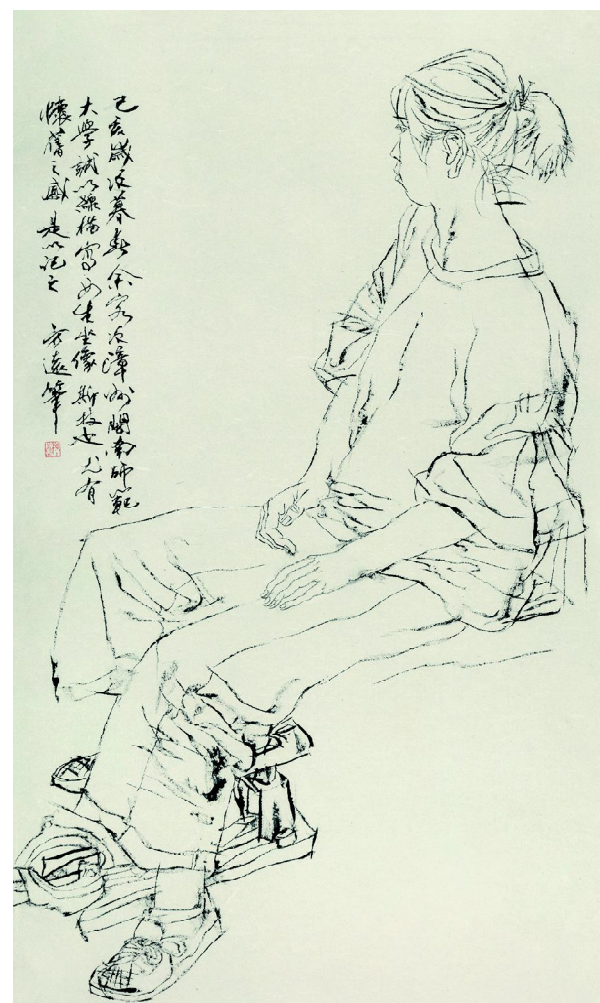 己亥歲次暮春余客次漳州閩南師範
大學試以線描寫女生坐像斯技也尤有
懷舊之感是以記之 方遠筆